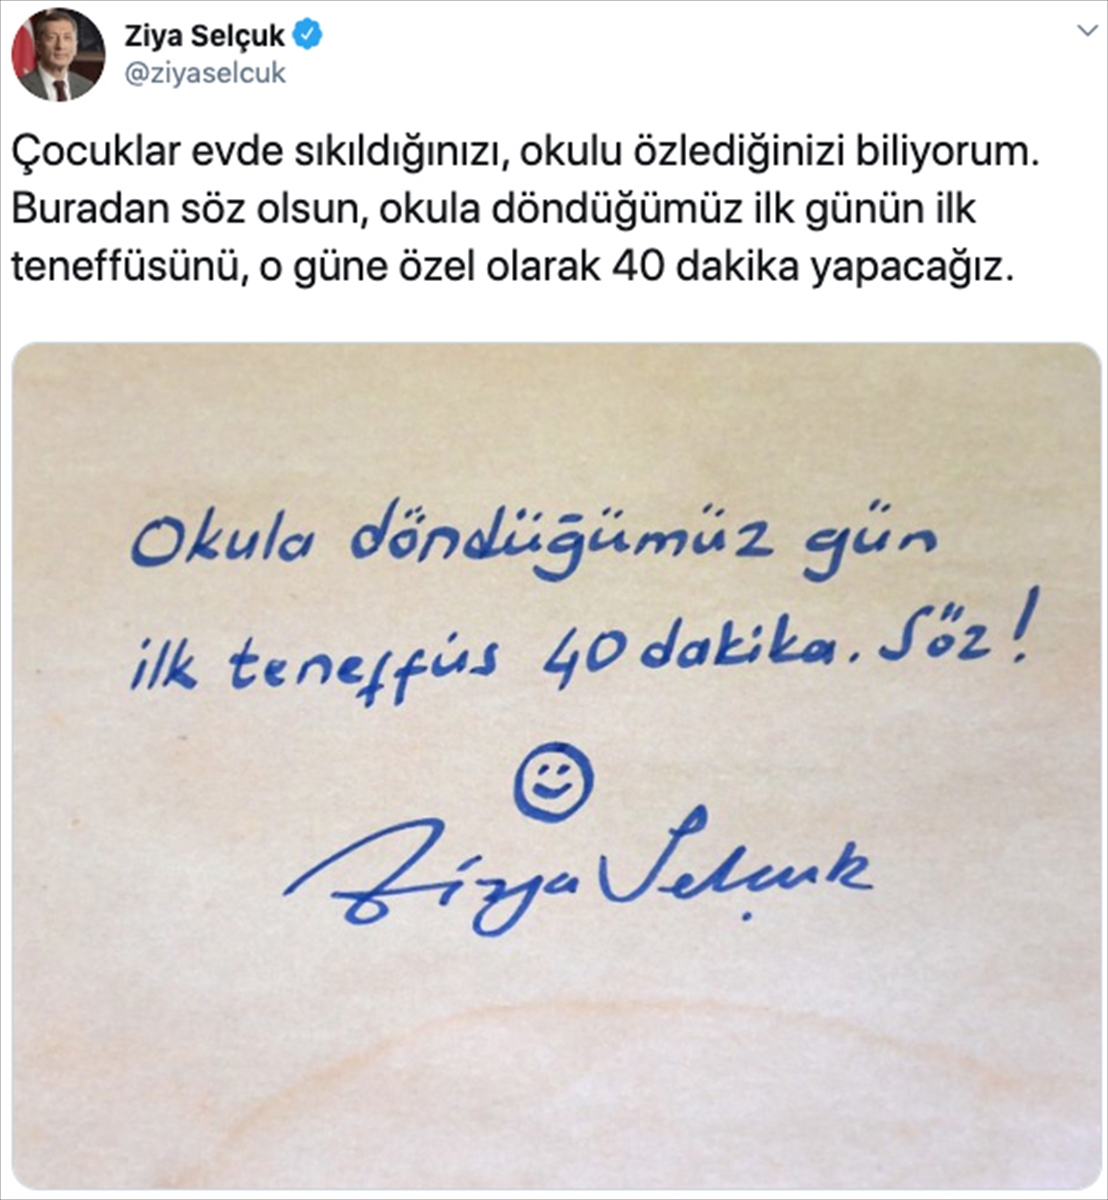 Ziya Selçuk
@ziyaselcuk
Çocuklar evde sıkıldığınızı, okulu özlediğinizi biliyorum.
Buradan söz olsun, okula döndüğümüz ilk günün ilk
teneffüsünü, o güne özel olarak 40 dakika yapacağız.
Okula döndüğümüz gün
ilk teneffüs 40 dakika. Söz!
Ziya Selçuk